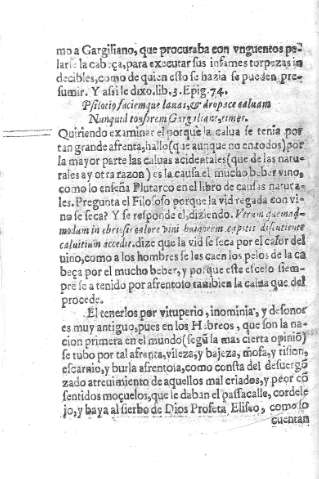 mo a Gargiliano, que procuraba con vnguentos pe-
larse la cabeça, para executar sus infames torpezas in
decibles, como de quien esto se hazia se pueden pre-
sumir. Y assi le dixo. lib. 3. Epig. 74.
Psilotro faciemque lauas, & dropace caluam
Nunquid tonsorem Gargiliane, times.
Quiriendo examinar el porque la calua se tenia por
tan grande afrenta, hallo (q̃ aunque no en todos) por
la mayor parte las caluas acidentales (que de las natu-
rales ay otra razon) es la causa el mucho beber vino,
como lo enseña Plutarco en el libro de causas natura-
les. Pregunta el Filosofo porque la vid regada con vi-
no se seca? Y se responde el, diziendo. Veram quemag-
modum in ebriosis calore vini humorem capitis discutiente
caluitium accedit. dize que la vid se seca por el calor del
vino, como a los hombres se les caen los pelos de la ca
beça por el mucho beber, y porque este es
pre se a tenido por afrentoso tambien la calua que del
procede.
El tenerlos por vituperio, inominia, y desonor
es muy antiguo, pues en los Hebreos, que son la na-
cion primera en el mundo (segũ la mas cierta opiniõ)
se tubo por tal afrenta, vileza, y bajeza, mofa, y rision,
escarnio, y burla afrentosa, como consta del desuergõ
zado atreuimiento de aquellos mal criados, y peor cõ
sentidos moçuelos, que le daban el passacalle, cordele
jo, y baya al sierbo de Dios Profeta Eliseo, como lo
cuentan